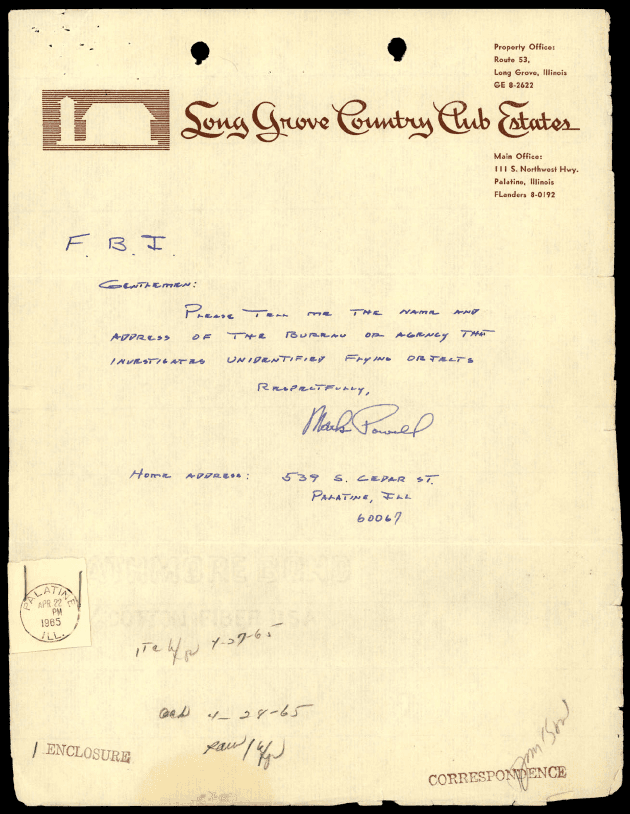 Property Office:
Route 53,
Long Grove, Illinois
GE 8-2622
Long Grove Country Club Estates
Main Office:
111 S. Northwest Hwy.
Palatine, Illinois
FLanders 8-0192
F. B. I.
GENTLEMEN:
PLEASE TELL ME THE NAME AND
ADDRESS OF THE BUREAU OR AGENCY THAT
INVESTIGATES UNIDENTIFIED FLYING OBJECTS
RESPECTFULLY,
Mark Powell
HOME ADDRESS: 539 S. CEDAR ST.
PALATINE, ILL
60067
PALATINE
APR 22
PM
1965
ILL.
4-27-65
ack 4-28-65
1 ENCLOSURE
CORRESPONDENCE